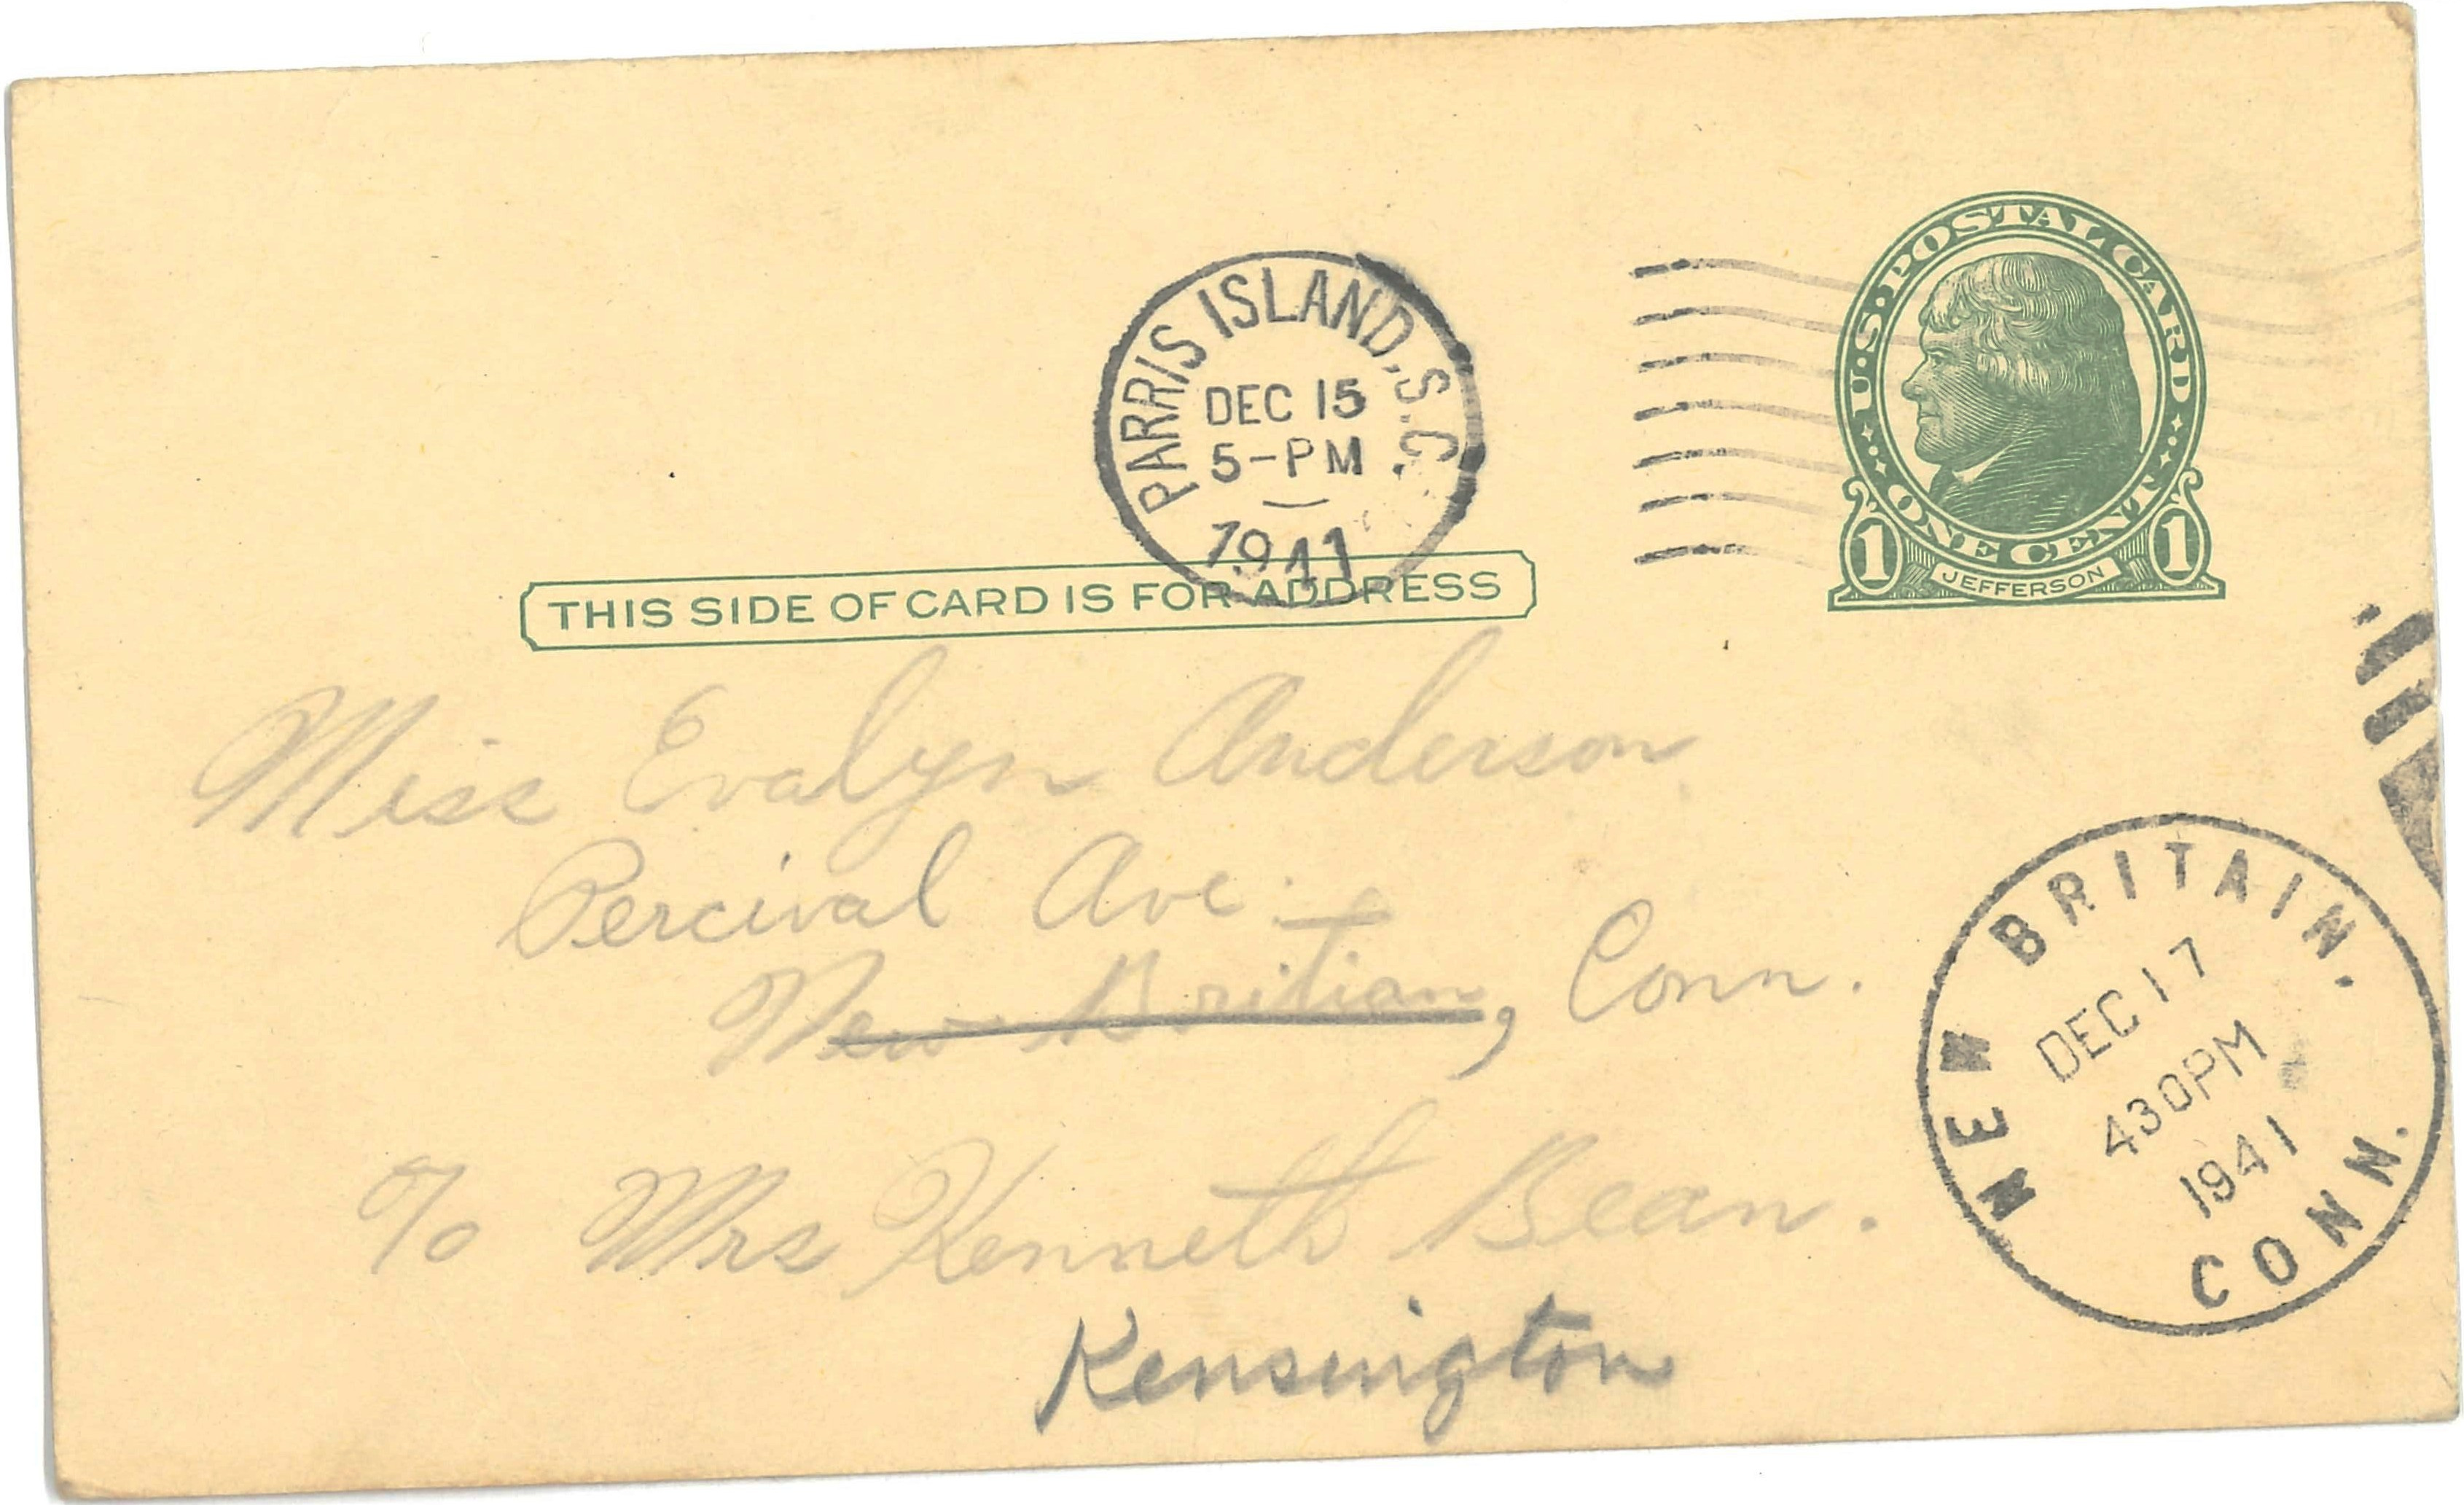 PARRIS ISLAND, S.C.
DEC 15
5-PM
1941
U.S. POSTAL CARD
ONE CENT
1 1
JEFFERSON
THIS SIDE OF CARD IS FOR ADDRESS
Miss Evalyn Anderson
Percival Ave.
New Britian, Conn.
c/o Mrs Kenneth Bean.
Kensington
NEW BRITAIN.
DEC 17
430PM
1941
CONN.